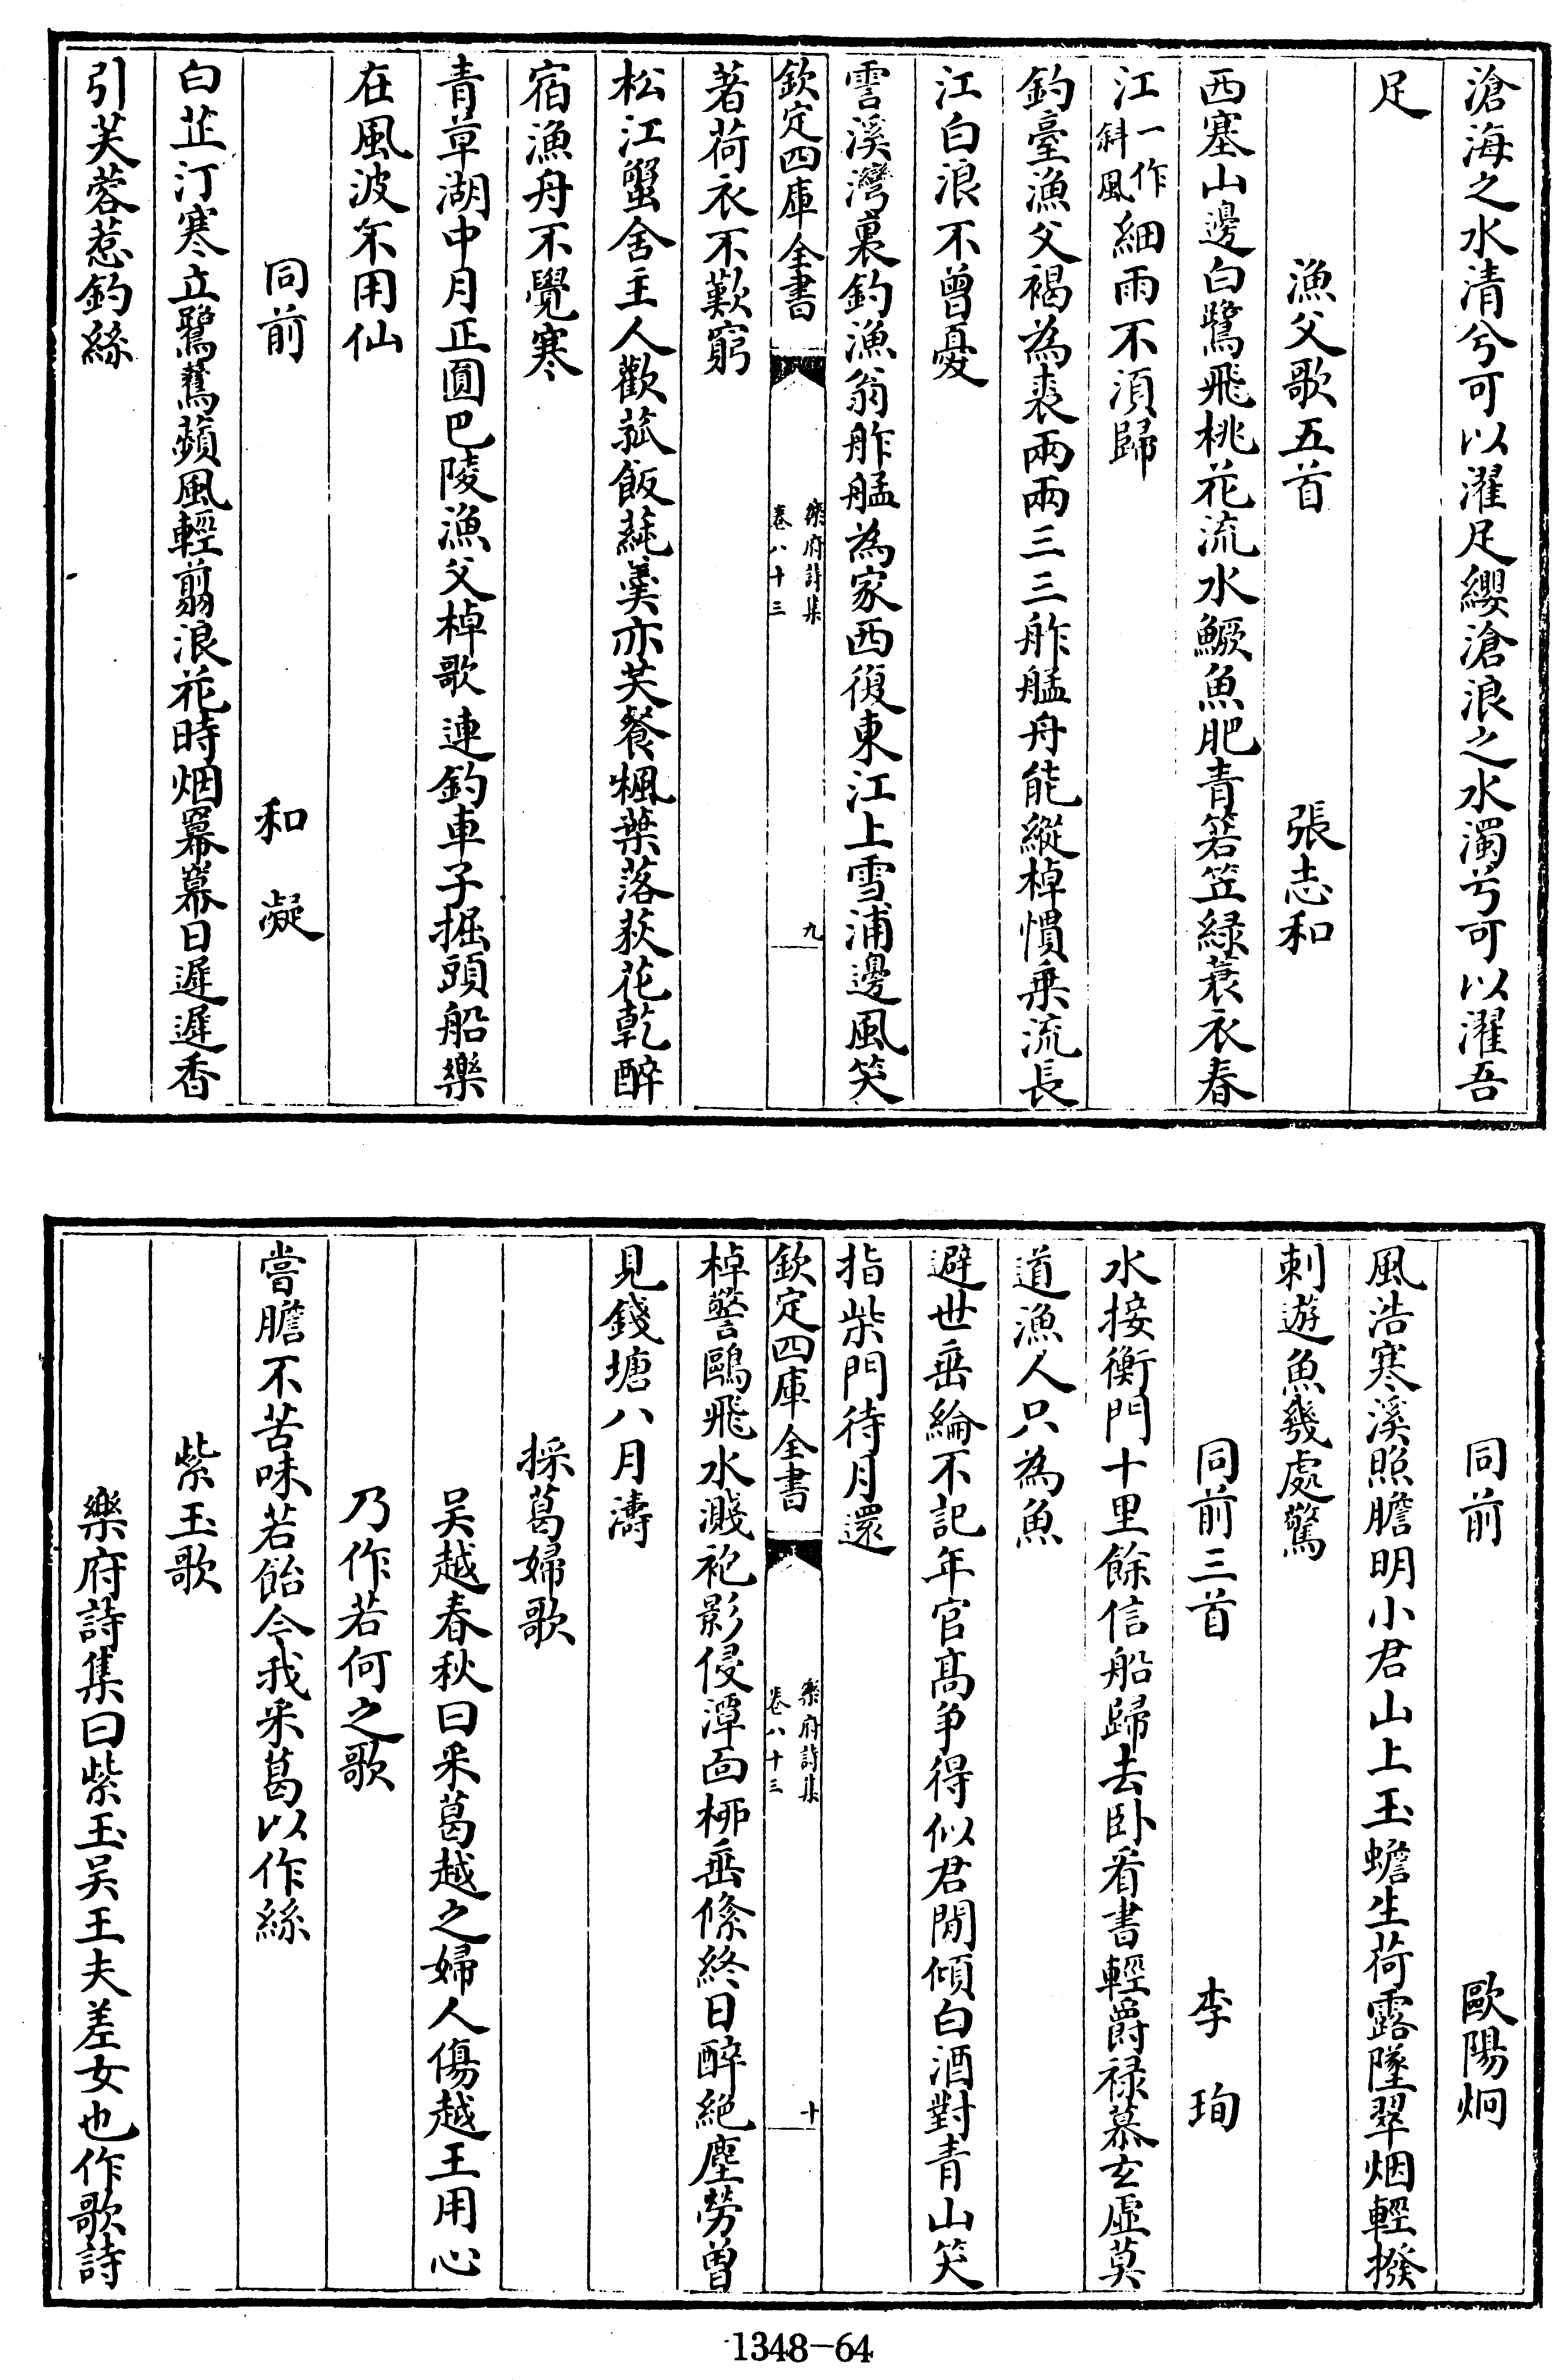 滄海之水清兮可以濯足纓滄浪之水濁兮可以濯吾
足
漁父歌五首 張志和
西塞山邊白鷺飛桃花流水鱖魚肥青箬笠緑蓑衣春
江一作斜風細雨不湏歸
釣臺漁父褐為裘兩兩三三舴艋舟能縱棹慣乗流長
江白浪不曾憂
霅溪灣裏釣漁翁舴艋為家西復東江上雪浦邊風笑
欽定四庫全書
樂府詩集
卷八十三
九
著荷衣不歎窮
松江蟹舍主人歡菰飯蒓羹亦芺餐楓葉落荻花乾醉
宿漁舟不覺寒
青草湖中月正圓巴陵漁父棹歌連釣車子掘頭船樂
在風波不用仙
同前 和凝
白芷汀寒立鷺鷥蘋風輕翦浪花時烟羃羃日遲遲香
引芙蓉惹釣絲
同前 歐陽炯
風浩寒溪照膽明小君山上玉蟾生荷露墜翠烟輕撥
刺遊魚幾處驚
同前三首 李珣
水接衡門十里餘信船歸去卧看書輕爵禄慕玄虚莫
道漁人只為魚
避世垂綸不記年官髙争得似君閒傾白酒對青山笑
指柴門待月還
欽定四庫全書
樂府詩集
卷八十三
十
棹警鷗飛水濺袍影侵潭面栁垂絛終日醉絶塵勞曽
見錢塘八月濤
採葛婦歌
吴越春秋曰采葛越之婦人傷越王用心
乃作若何之歌
嘗膽不苦味若飴今我采葛以作絲
紫玉歌
樂府詩集曰紫玉吴王夫差女也作歌詩
1348-64